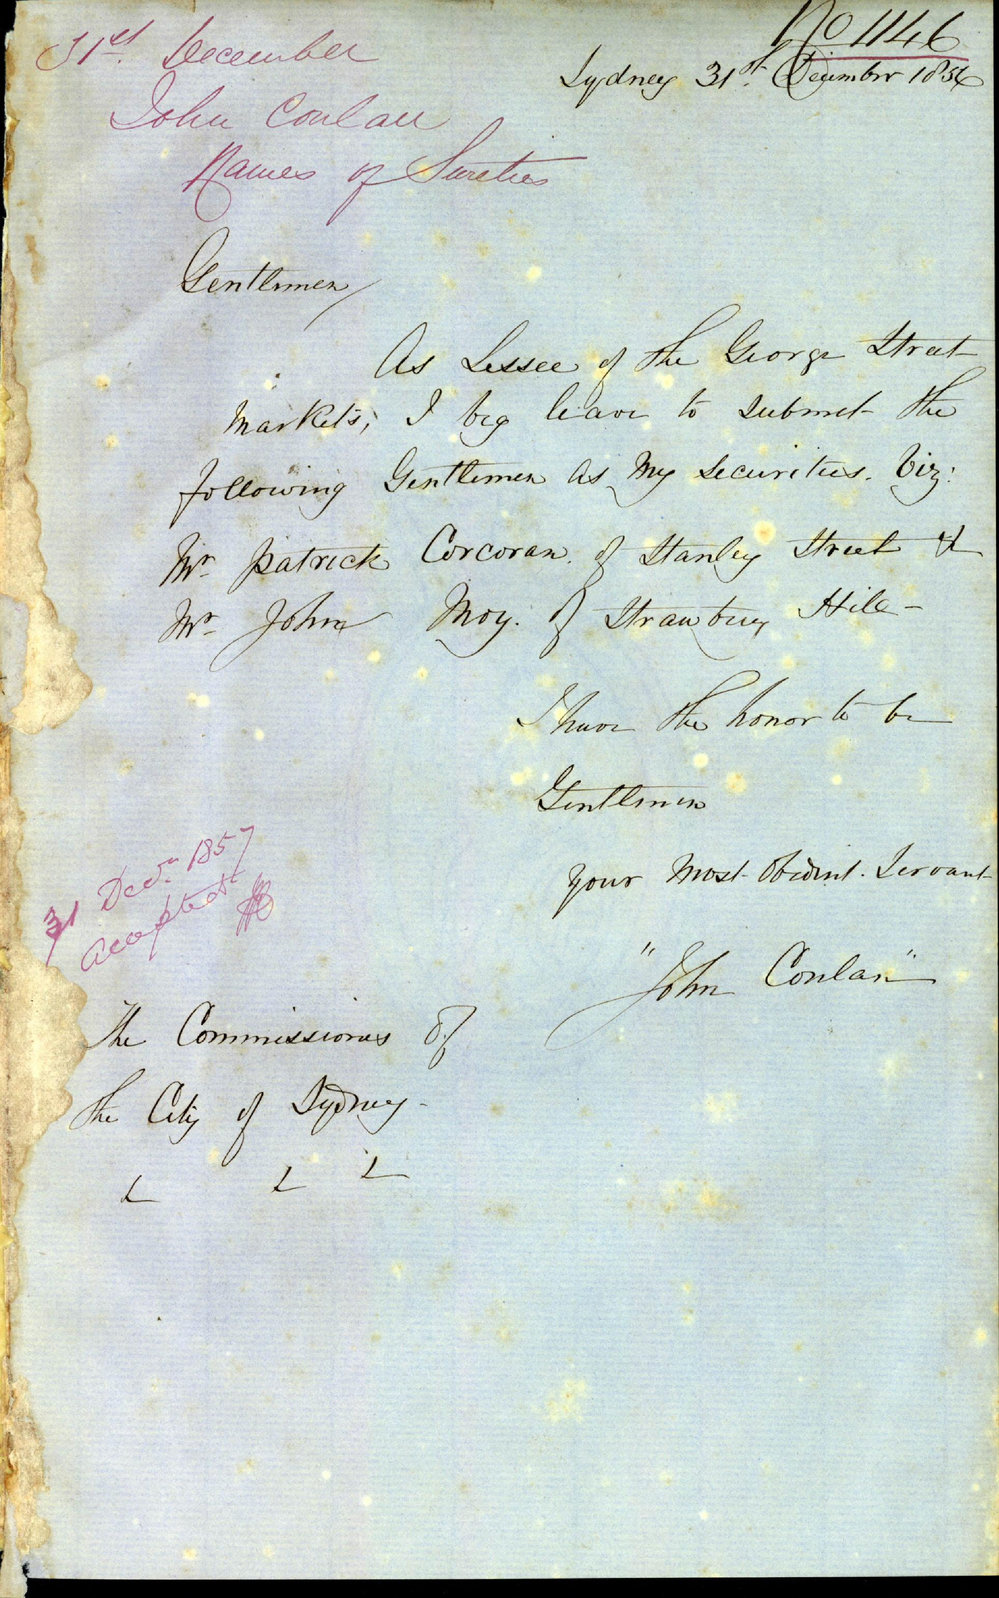 No 1146
31st. December
Sydney 31st. December 1856
John Conlan
Names of Sureties
Gentlemen
As Lessee of the George Street
Markets, I beg leave to submit the
following Gentlemen as My Securities. Viz:
Mr. Patrick Corcoran of Stanley Street &
Mr. John Moy. of Strawbury Hill -
I have the honor to be
Gentlemen
your Most Obedient Servant
31 Decr. 1857
Accepted
"John Conlan"
The Commissioners of
the City of Sydney -